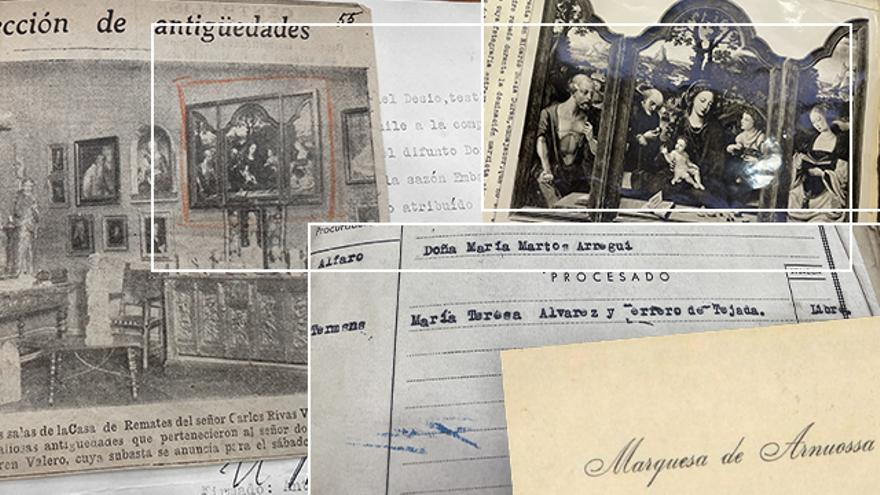 ección de antigüedades
55
s salas de la Casa de Remates del señor Carlos Rivas V
aliosas antigüedades que pertenecieron al señor do
ren Valero, cuya subasta se anuncia para el sábado
el Desio, test
ile a la comp
l difunto Do
la sazón Emba
o atribuido
Firmado:
Procurador
Alfaro
Doña María Martos Arregui
PROCESADO
Termens
María Teresa Alvarez y erfero de Tejada.
Libre.
Marquesa de Arnuossa